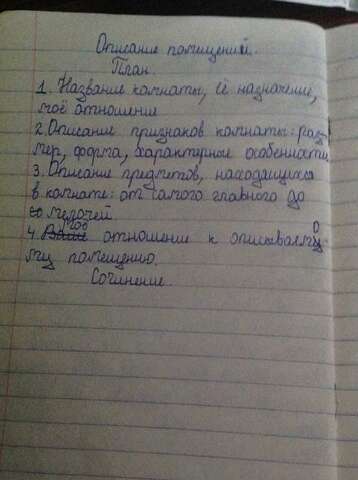 Описание помещений.
План.
1. Название комнаты, её назначение,
моё отношение
2. Описание признаков комнаты: раз
мер, форма, характерные особенности
3. Описание предметов, находящихся
в комнате: от самого главного до
мелочей
4. Моё отношение к описываемо
му помещению.
Сочинение.